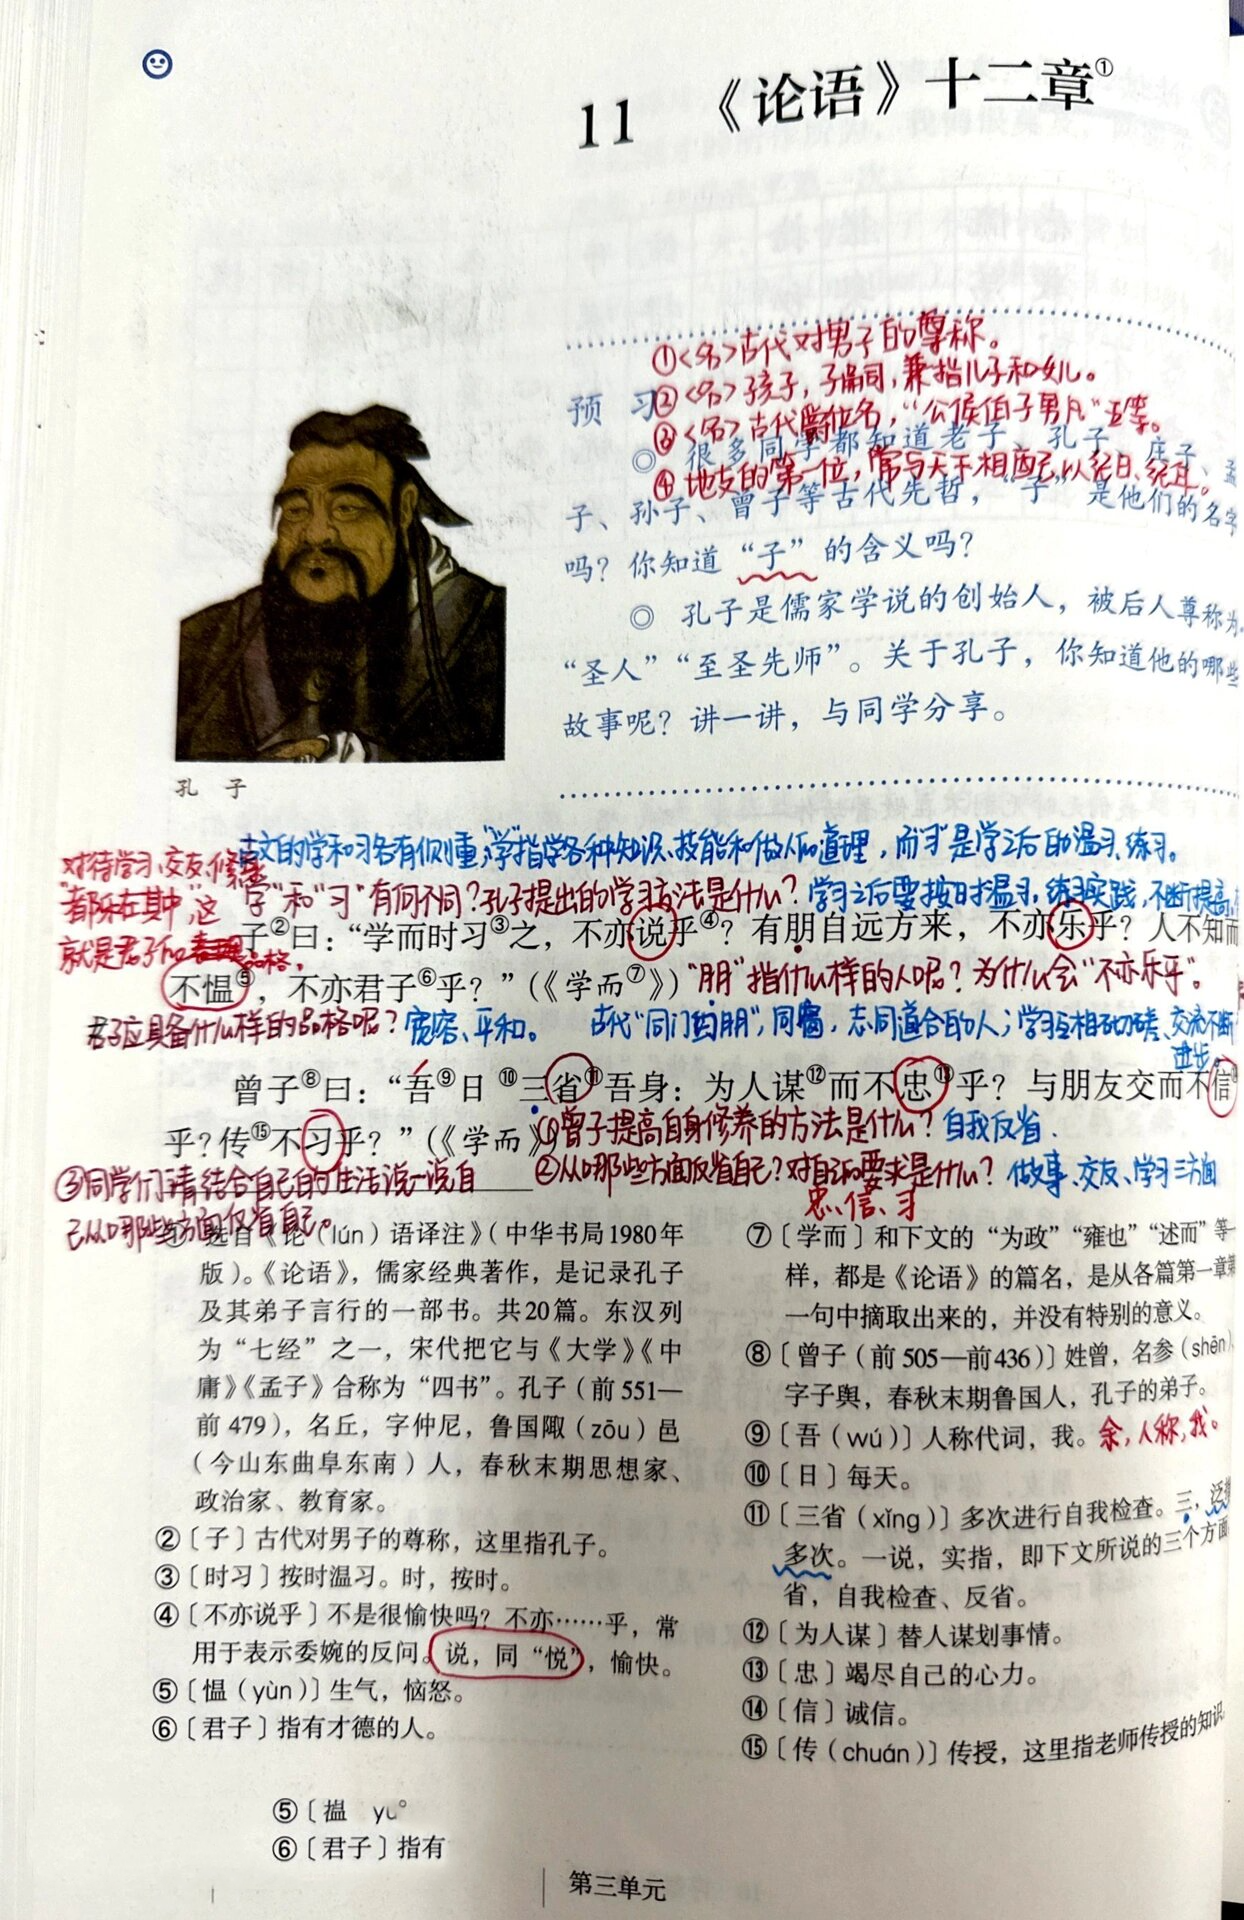 11 《论语》十二章①
①<名>古代对男子的尊称。
预 习
②<名>孩子，子嗣，兼指儿子和女儿。
③<名>古代爵位名，“公侯伯子男凡”五等。
◎ 很多同学都知道老子、孔子、庄子、孟
④地支的第一位，常与天干相配，以纪日、纪年。
子、孙子、曾子等古代先哲，“子”是他们的名字
吗？你知道“子”的含义吗？
◎ 孔子是儒家学说的创始人，被后人尊称为
“圣人”“至圣先师”。关于孔子，你知道他的哪些
故事呢？讲一讲，与同学分享。
孔 子
古文的学和习各有侧重，“学”指学各种知识、技能和做人的道理，而“习”是学之后的温习、练习。
对待学习、交友、修养
“都乐在其中”，这
就是君子的品格。
“学”和“习”有何不同？孔子提出的学习方法是什么？学习之后要按时温习，练习实践，不断提高。
子②曰：“学而时习③之，不亦说乎④？有朋自远方来，不亦乐乎？人不知而
不愠⑤，不亦君子⑥乎？”（《学而⑦》）
“朋”指什么样的人呢？为什么会“不亦乐乎”。
君子应具备什么样的品格呢？宽容、平和。
古代“同门曰朋”，同窗，志同道合的人；学习互相切磋、交流不断
进步。
曾子⑧曰：“吾⑨日⑩三省⑪吾身：为人谋⑫而不忠⑬乎？与朋友交而不信⑭
乎？传⑮不习乎？”（《学而》）
①曾子提高自身修养的方法是什么？自我反省．
②从哪些方面反省自己？对自己的要求是什么？做事、交友、学习三方面
忠、信、习
③同学们请结合自己的生活说一说自
己从哪些方面反省自己。
① 选自《论（lún）语译注》（中华书局1980年
版）。《论语》，儒家经典著作，是记录孔子
及其弟子言行的一部书。共20篇。东汉列
为“七经”之一，宋代把它与《大学》《中
庸》《孟子》合称为“四书”。孔子（前551—
前479），名丘，字仲尼，鲁国陬（zōu）邑
（今山东曲阜东南）人，春秋末期思想家、
政治家、教育家。
②〔子〕古代对男子的尊称，这里指孔子。
③〔时习〕按时温习。时，按时。
④〔不亦说乎〕不是很愉快吗？不亦……乎，常
用于表示委婉的反问。说，同“悦”，愉快。
⑤〔愠（yùn）〕生气，恼怒。
⑥〔君子〕指有才德的人。
⑦〔学而〕和下文的“为政”“雍也”“述而”等一
样，都是《论语》的篇名，是从各篇第一章第
一句中摘取出来的，并没有特别的意义。
⑧〔曾子（前505—前436）〕姓曾，名参（shēn），
字子舆，春秋末期鲁国人，孔子的弟子。
⑨〔吾（wú）〕人称代词，我。余，人称，我。
⑩〔日〕每天。
⑪〔三省（xǐng）〕多次进行自我检查。三，泛指
多次。一说，实指，即下文所说的三个方面。
省，自我检查、反省。
⑫〔为人谋〕替人谋划事情。
⑬〔忠〕竭尽自己的心力。
⑭〔信〕诚信。
⑮〔传（chuán）〕传授，这里指老师传授的知识。
⑤〔愠 yu
⑥〔君子〕指有
第三单元